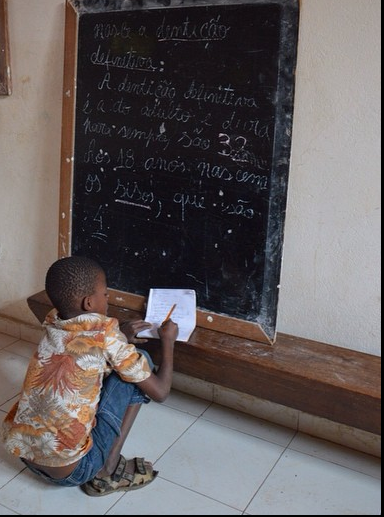 nasce a dentição
definitiva:
A dentição definitiva
é a do adulto e dura
para sempre, são 32
Aos 18 anos nascem
os sisos, que são
4.